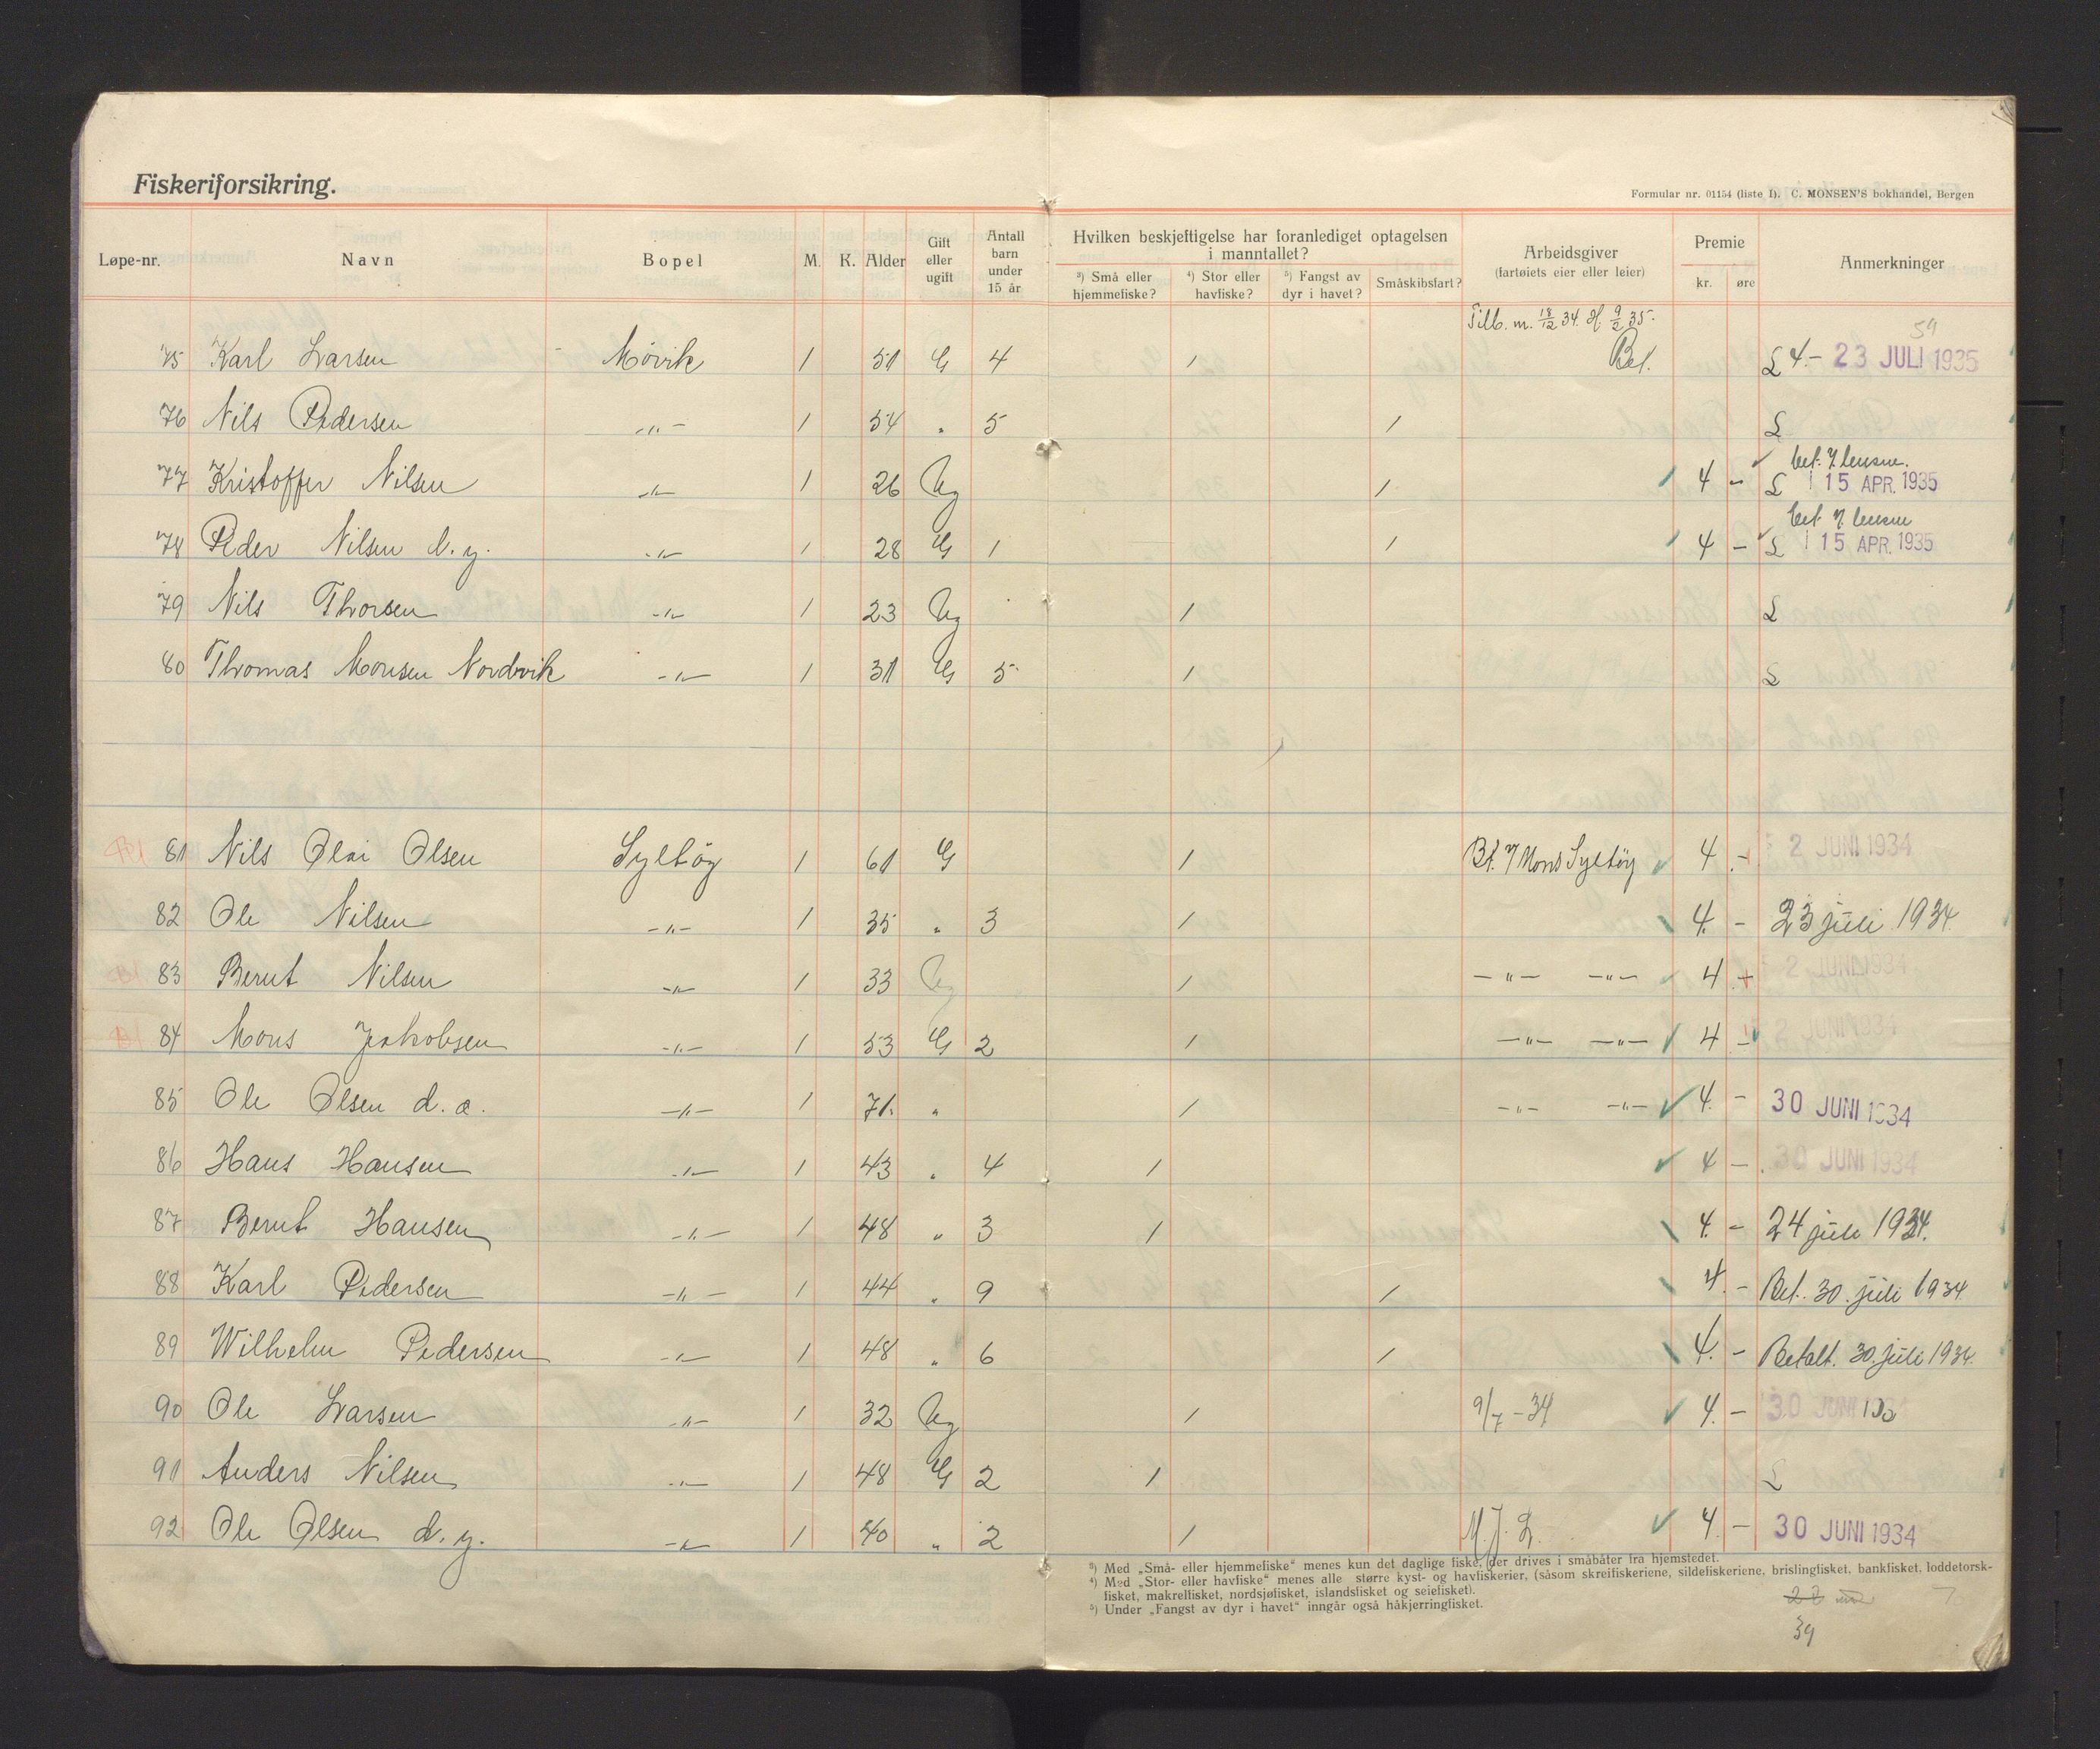 Fiskeriforsikring.
Formular nr. 01154 (liste I). C. MONSEN'S bokhandel, Bergen
Løpe-nr. Navn Bopel M. K. Alder Gift eller ugift Antall barn under 15 år Hvilken beskjeftigelse har foranlediget optagelsen i manntallet? ³) Små eller hjemmefiske? ⁴) Stor eller havfiske? ⁵) Fangst av dyr i havet? Småskibsfart? Arbeidsgiver (fartøiets eier eller leier) Premie kr. øre Anmerkninger
Tilb. m. 18/12 34. 9/2 35.
75 Karl Larsen Môvik 1 51 G 4 1 Bet. L 4.- 23 JULI 1935
76 Nils Pedersen -"- 1 54 " 5 1 L
bet.
77 Kristoffer Nilsen -"- 1 26 Ug 1 4 - L 15 APR. 1935
bet.
78 Peder Nilsen d.y. -"- 1 28 G 1 1 4 - L 15 APR. 1935
79 Nils Thorsen -"- 1 23 Ug 1 L
80 Thomas Monsen Nordvik -"- 1 31 G 5 1 L
81 Nils Olai Olsen Syltöy 1 61 G 1 Bt. Mons Syltöy 4 .- 2 JUNI 1934
82 Ole Nilsen -"- 1 35 " 3 1 4. - 23 juli 1934
83 Bernt Nilsen -"- 1 33 Ug 1 -"- -"- 4 + 2 JUNI 1934
84 Mons Jakobsen -"- 1 53 G 2 1 -"- -"- 4 - 2 JUNI 1934
85 Ole Olsen d.e. -"- 1 71. " 1 -"- -"- 4. - 30 JUNI 1934
86 Hans Hansen -"- 1 43 " 4 1 4 - 30 JUNI 1934
87 Bernt Hansen -"- 1 48 " 3 1 4. - 24 juli 1934.
88 Karl Pedersen -"- 1 44 " 9 1 4. - Bet. 30. juli 1934
89 Wilhelm Pedersen -"- 1 48 " 6 1 4. - Betalt. 30. juli 1934.
90 Ole Larsen -"- 1 32 Ug 1 9/7 - 34 4. - 30 JUNI
91 Anders Nilsen -"- 1 48 G 2 1 L
92 Ole Olsen d.y. -"- 1 40 " 2 1 M. J. S. 4. - 30 JUNI 1934
³) Med „Små- eller hjemmefiske" menes kun det daglige fiske, der drives i småbåter fra hjemstedet.
⁴) Med „Stor- eller havfiske" menes alle større kyst- og havfiskerier, (såsom skreifiskeriene, sildefiskeriene, brislingfisket, bankfisket, loddetorsk-
fisket, makrelfisket, nordsjøfisket, islandsfisket og seiefisket).
⁵) Under „Fangst av dyr i havet" inngår også håkjerringfisket.
39